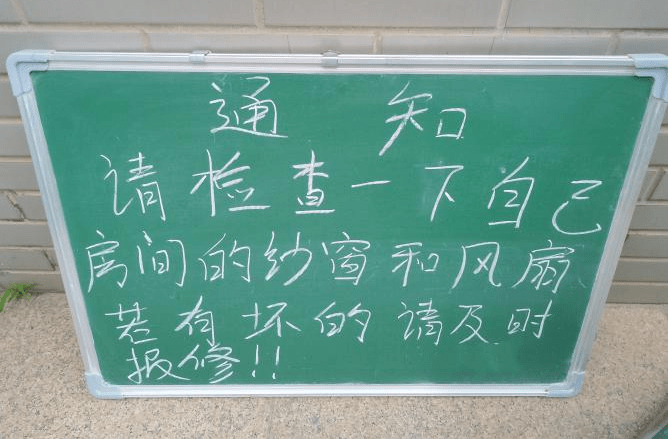 通知
请检查一下自己
房间的纱窗和风扇
若有坏的请及时
报修!!